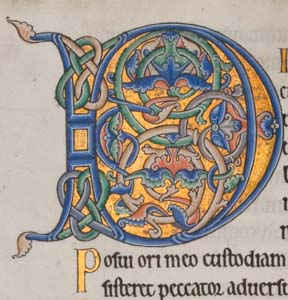 D
Posui ori meo custodiam
sisteret peccator aduerse